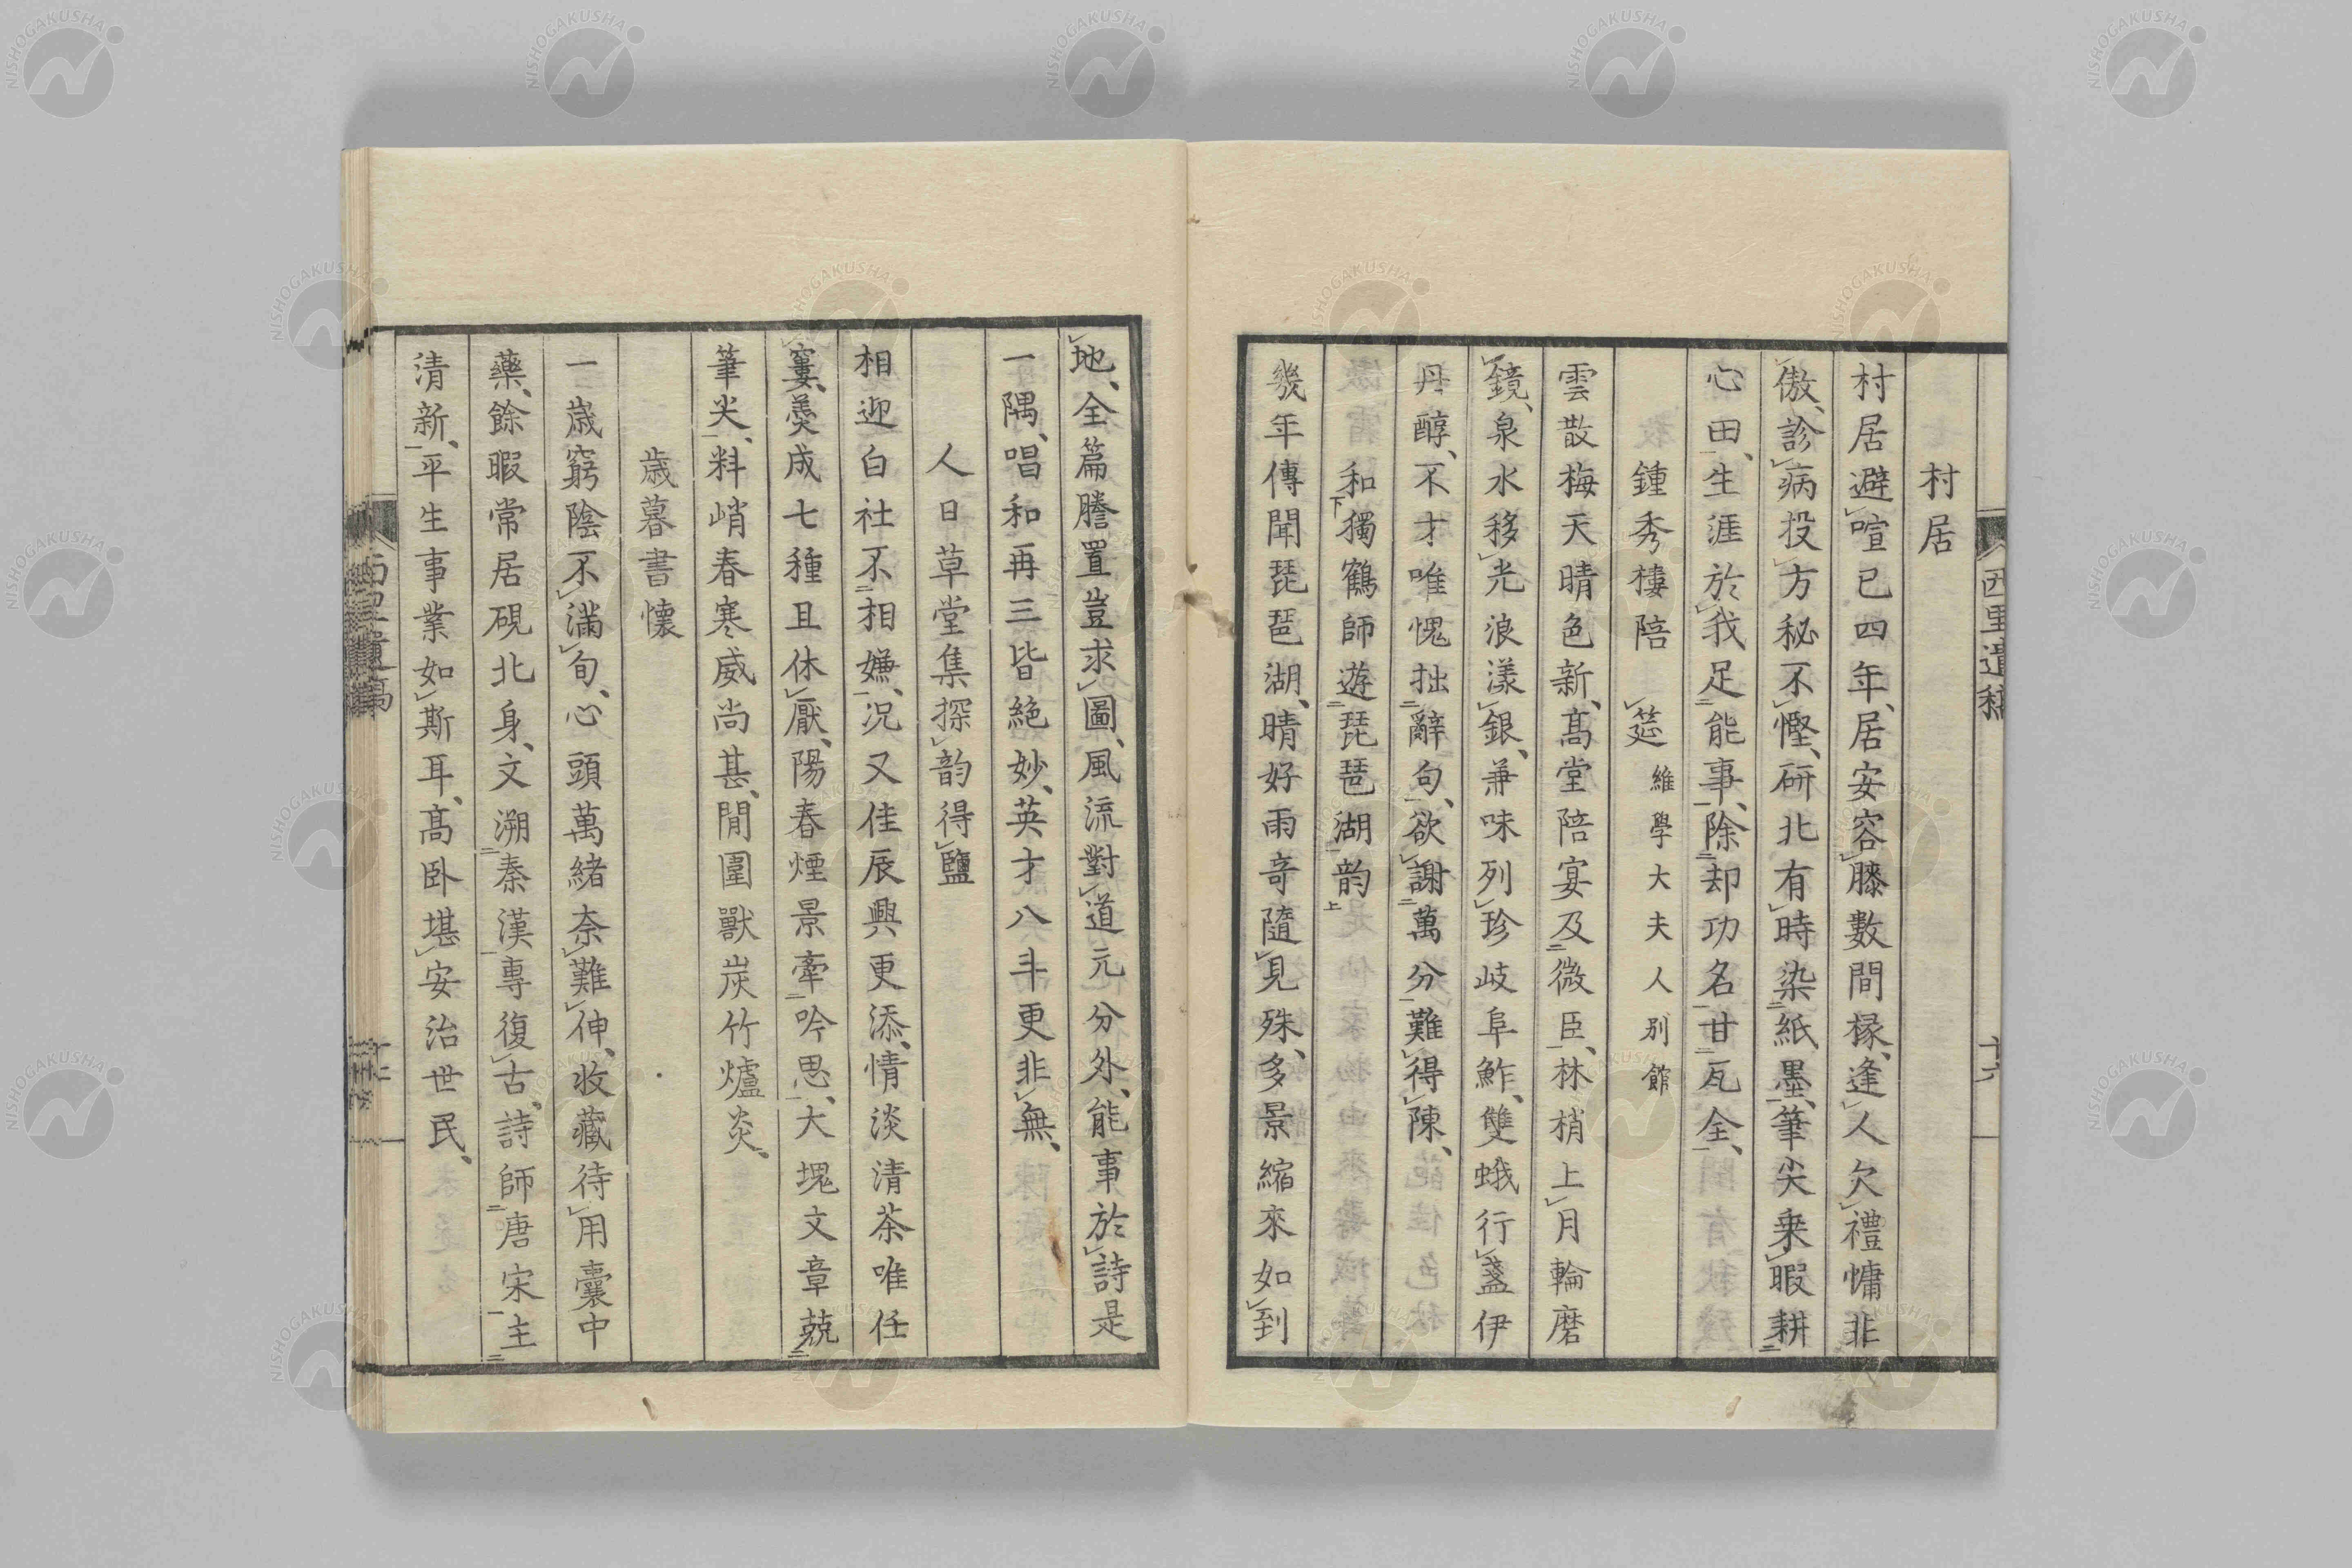 西里遺稿
十六
村居
村居避喧已四年、居安容膝數間椽、逢人欠禮慵非
傲、診病投方秘不慳、研北有時染紙墨、筆尖乗暇耕
心田、生涯於我足能事、除却功名甘瓦全、
鍾秀樓陪 筵 維學大夫人別館
雲散梅天晴色新、髙堂陪宴及微臣、林梢上月輪磨
鏡、泉水移光浪漾銀、兼味列珍岐阜鮓、雙蛾行盞伊
丹醇、不才唯愧拙辭句、欲謝萬分難得陳、
和獨鶴師遊琵琶湖韵
幾年傳聞琵琶湖、晴好雨奇隨見殊、多景縮來如到
地、全篇謄置豈求圖、風流對道元分外、能事於詩是
一隅、唱和再三皆絶妙、英才八斗更非無、
人日草堂集探韵得鹽
相迎白社不相嫌、況又佳辰興更添、情淡清茶唯任
寠、羮成七種且休厭、陽春煙景牽吟思、大塊文章兢
筆尖、料峭春寒威尚甚、閒圍獸炭竹爐炎、
歳暮書懷
一歳窮陰不滿旬、心頭萬緒奈難伸、收藏待用囊中
藥、餘暇常居硯北身、文溯秦漢專復古、詩師唐宋主
清新、平生事業如斯耳、髙卧堪安治世民、